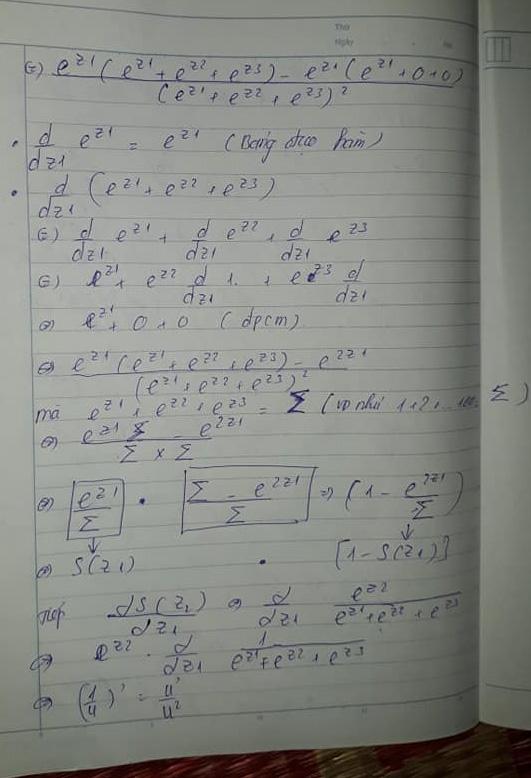 Thứ
Ngày
⇔) e^z1 (e^z1 + e^z2 + e^z3) - e^z1 (e^z1 + 0 + 0) / (e^z1 + e^z2 + e^z3)^2
• d/dz1 e^z1 = e^z1 (Bảng đạo hàm)
• d/dz1 (e^z1 + e^z2 + e^z3)
⇔) d/dz1 e^z1 + d/dz1 e^z2 + d/dz1 e^z3
⇔) e^z1 + e^z2 d/dz1 1. + e^z3 d/dz1
⇔ e^z1 + 0 + 0 (dpcm)
⇔ e^z1 (e^z1 + e^z2 + e^z3) - e^2z1 / (e^z1 + e^z2 + e^z3)^2
mà e^z1 + e^z2 + e^z3 = Σ (1+2+... Σ)
⇔) e^z1 Σ - e^2z1 / Σ x Σ
⇔) e^z1 / Σ • Σ - e^2z1 / Σ => (1 - e^2z1 / Σ)
⇔ S(z1) • [1 - S(z1)]
tiếp dS(z2) / dz1 ⇔ d/dz1 e^z2 / e^z1 + e^z2 + e^z3
⇔ e^z2 . d/dz1 1 / e^z1 + e^z2 + e^z3
⇔ (1/u)' = u' / u^2